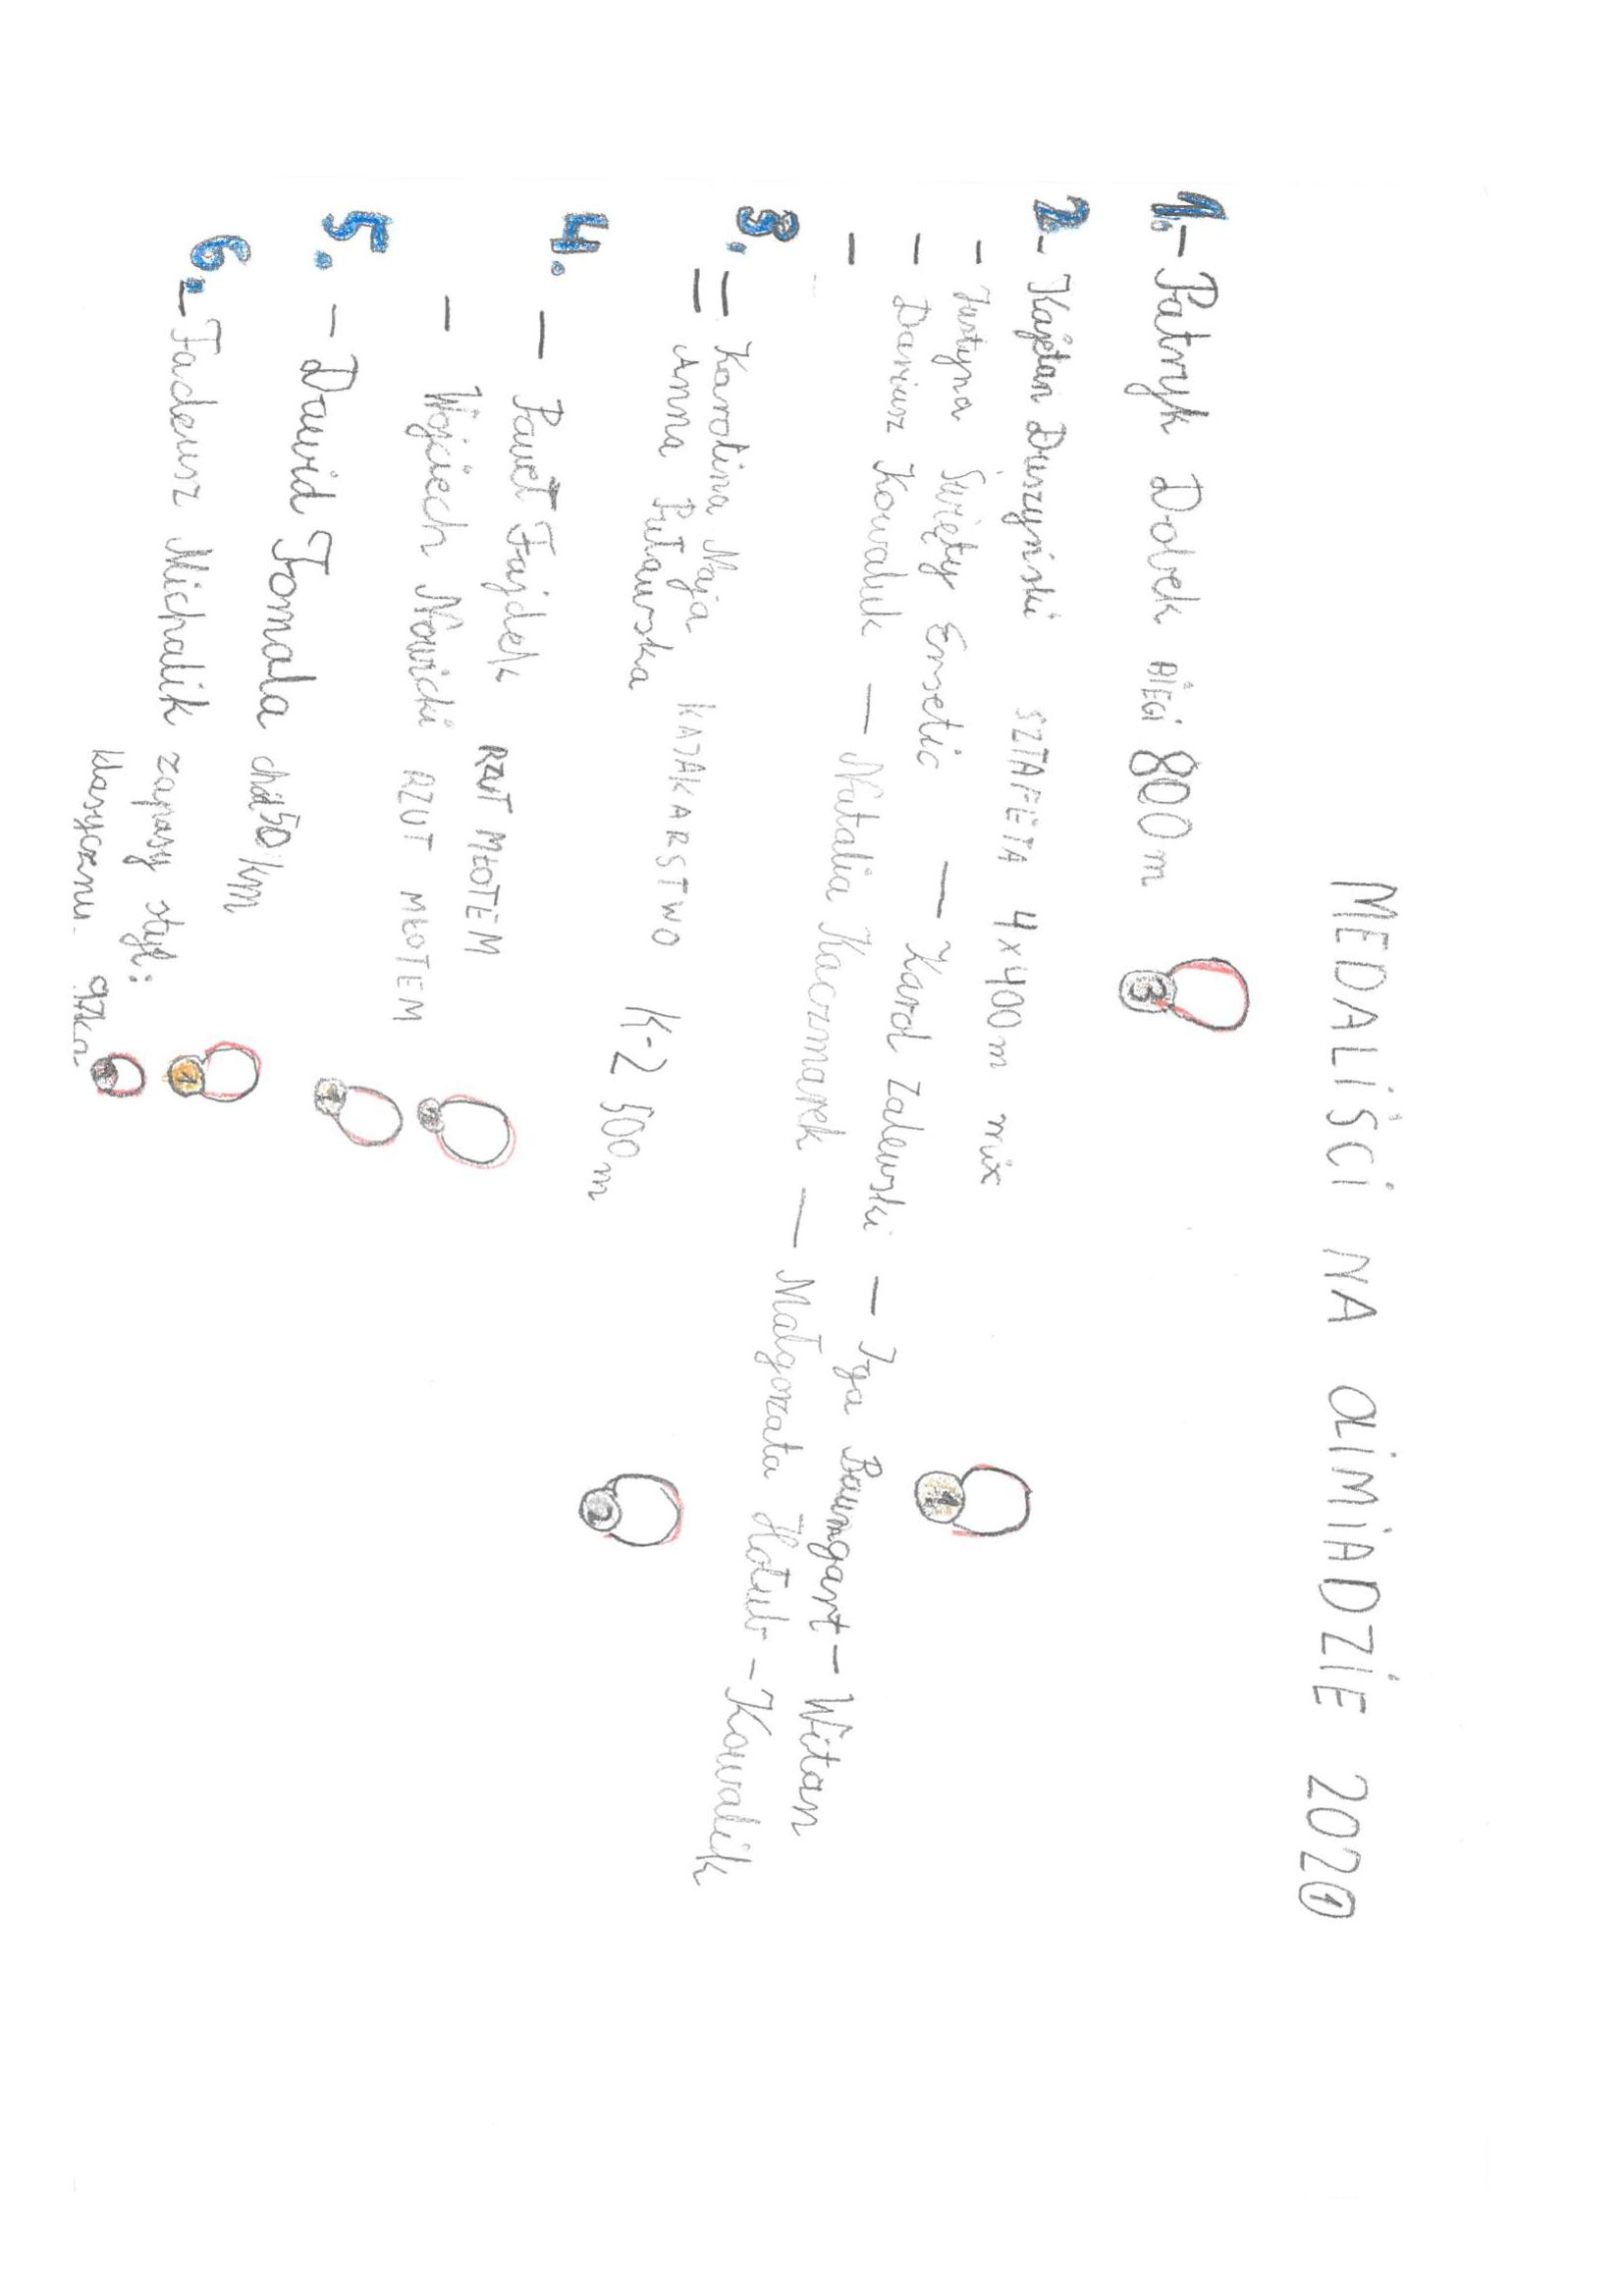 MEDALIŚCI NA OLIMIADZIE 2021
1. - Patryk Dobek BIEGI 800 m 3
2. - Kajetan Duszyński SZTAFETA 4x400m mix 1
- Justyna Święty Ersetic - Karol Zalewski - Iga Baumgart - Witan
- Dariusz Kowaluk - Natalia Kaczmarek - Małgorzata Hołub - Kowalik
-
3. = Karolina Naja KAJAKARSTWO K-2 500 m 2
= Anna Puławska
4. - Paweł Fajdek RZUT MŁOTEM
- Wojciech Nowicki RZUT MŁOTEM 1
5. - Dawid Tomala chód 50 km 1
6. - Tadeusz Michalik zapasy styl:
klasyczny